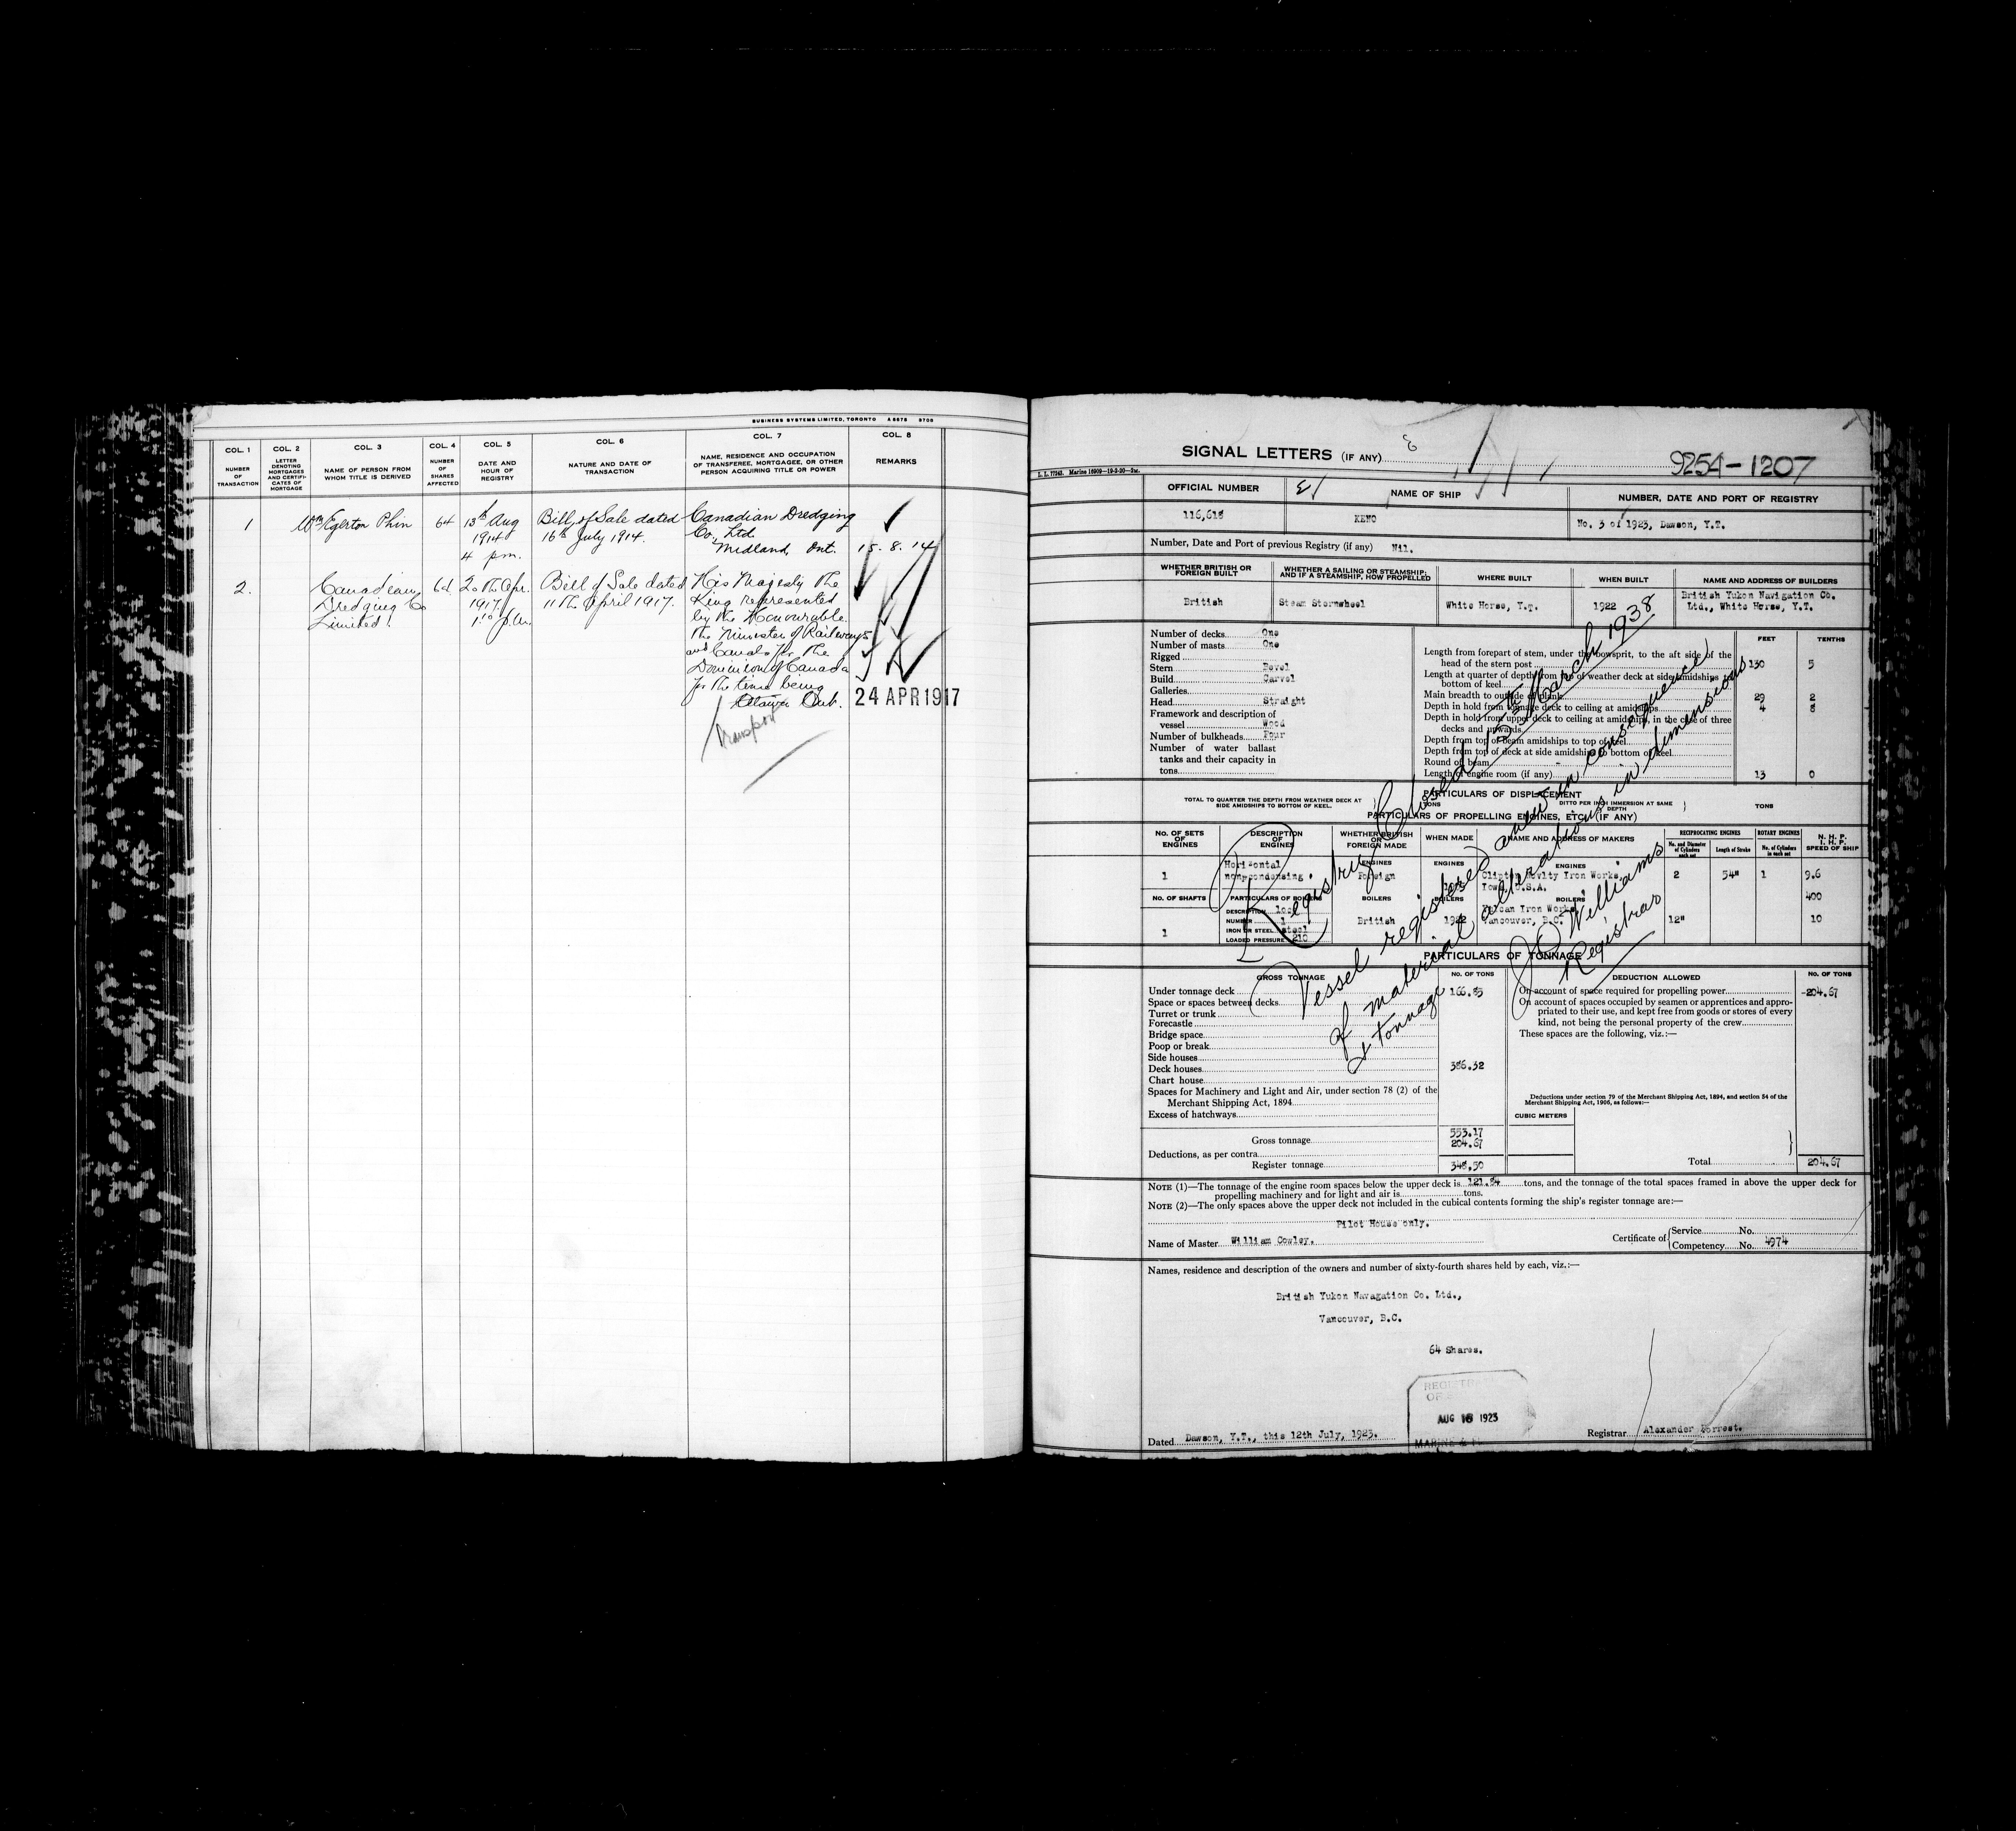 BUSINESS SYSTEMS LIMITED, TORONTO A 6576 8706
COL. 1 COL. 2 COL. 3 COL. 4 COL. 5 COL. 6 COL. 7 COL. 8
NUMBER OF TRANSACTION
LETTER DENOTING MORTGAGES AND CERTIFICATES OF MORTGAGE
NAME OF PERSON FROM WHOM TITLE IS DERIVED
NUMBER OF SHARES AFFECTED
DATE AND HOUR OF REGISTRY
NATURE AND DATE OF TRANSACTION
NAME, RESIDENCE AND OCCUPATION OF TRANSFEREE, MORTGAGEE, OR OTHER PERSON ACQUIRING TITLE OR POWER
REMARKS
1 Wm Egerton Phin 64 13th Aug Bill of Sale dated Canadian Dredging
1914 16th July 1914. Co., Ltd.
4 pm. Midland, Ont. 15. 8. 14
2. Canadian 64 20th Apr. Bill of Sale dated His Majesty the
Dredging Co 1917. 11th April 1917. King represented
Limited. 1.10 p.m. by the Honourable
the Minister of Railways
and Canals for the
Dominion of Canada
for the time being
Ottawa Ont. 24 APR 1917
Transport
SIGNAL LETTERS (IF ANY)
9254-1207
L. L. 77243. Marine 16909—19-2-20—2M.
OFFICIAL NUMBER NAME OF SHIP NUMBER, DATE AND PORT OF REGISTRY
116,618 KENO No. 3 of 1923, Dawson, Y.T.
Number, Date and Port of previous Registry (if any) Nil.
WHETHER BRITISH OR FOREIGN BUILT
WHETHER A SAILING OR STEAMSHIP; AND IF A STEAMSHIP, HOW PROPELLED
WHERE BUILT
WHEN BUILT
NAME AND ADDRESS OF BUILDERS
British Steam Sternwheel White Horse, Y.T. 1922 British Yukon Navigation Co.
Ltd., White Horse, Y.T.
Number of decks One
Number of masts One
Rigged
Stern Bevel
Build Carvel
Galleries
Head Straight
Framework and description of
vessel Wood
Number of bulkheads Four
Number of water ballast
tanks and their capacity in
tons
FEET TENTHS
Length from forepart of stem, under the bowsprit, to the aft side of the
head of the stern post 130 5
Length at quarter of depth from top of weather deck at side amidships to
bottom of keel
Main breadth to outside of plank 29 2
Depth in hold from tonnage deck to ceiling at amidships 4 8
Depth in hold from upper deck to ceiling at amidships, in the case of three
decks and upwards
Depth from top of beam amidships to top of keel
Depth from top of deck at side amidships to bottom of keel
Round of beam
Length of engine room (if any) 13 0
PARTICULARS OF DISPLACEMENT
TOTAL TO QUARTER THE DEPTH FROM WEATHER DECK AT SIDE AMIDSHIPS TO BOTTOM OF KEEL.
TONS
DITTO PER INCH IMMERSION AT SAME DEPTH
TONS
PARTICULARS OF PROPELLING ENGINES, ETC. (IF ANY)
NO. OF SETS OF ENGINES
DESCRIPTION OF ENGINES
WHETHER BRITISH OR FOREIGN MADE
WHEN MADE
NAME AND ADDRESS OF MAKERS
RECIPROCATING ENGINES
No. and Diameter of Cylinders each set
Length of Stroke
ROTARY ENGINES
No. of Cylinders in each set
N. H. P.
I. H. P.
SPEED OF SHIP
Horizontal ENGINES ENGINES ENGINES
1 noncondensing Foreign Iron Works, 2 54" 1 9.6
Iowa, U.S.A.
NO. OF SHAFTS PARTICULARS OF BOILERS BOILERS BOILERS BOILERS 400
DESCRIPTION loco Vulcan Iron Works
NUMBER 1 British 1922 Vancouver, B.C. 12" 10
1 IRON OR STEEL steel
LOADED PRESSURE 210
PARTICULARS OF TONNAGE
GROSS TONNAGE NO. OF TONS DEDUCTION ALLOWED NO. OF TONS
Under tonnage deck 166.85
Space or spaces between decks
Turret or trunk
Forecastle
Bridge space
Poop or break
Side houses
Deck houses 386.32
Chart house
Spaces for Machinery and Light and Air, under section 78 (2) of the
Merchant Shipping Act, 1894
Excess of hatchways
Gross tonnage 553.17
Deductions, as per contra 204.67
Register tonnage 348.50
On account of space required for propelling power 204.67
On account of spaces occupied by seamen or apprentices and appro-
priated to their use, and kept free from goods or stores of every
kind, not being the personal property of the crew
These spaces are the following, viz.:—
Deductions under section 79 of the Merchant Shipping Act, 1894, and section 54 of the
Merchant Shipping Act, 1906, as follows:—
CUBIC METERS
Total 204.67
NOTE (1)—The tonnage of the engine room spaces below the upper deck is 121.84 tons, and the tonnage of the total spaces framed in above the upper deck for
propelling machinery and for light and air is tons.
NOTE (2)—The only spaces above the upper deck not included in the cubical contents forming the ship's register tonnage are:—
Pilot House only.
Name of Master William Cowley.
Certificate of Service No.
Competency No. 4974
Names, residence and description of the owners and number of sixty-fourth shares held by each, viz.:—
British Yukon Navagation Co. Ltd.,
Vancouver, B.C.
64 Shares.
AUG 16 1923
Dated Dawson, Y.T., this 12th July, 1923.
Registrar Alexander Forrest.
Registry Closed 15th March 1938
Vessel registered anew in consequence
of material alterations in dimensions
& tonnage
Williams
Registrar